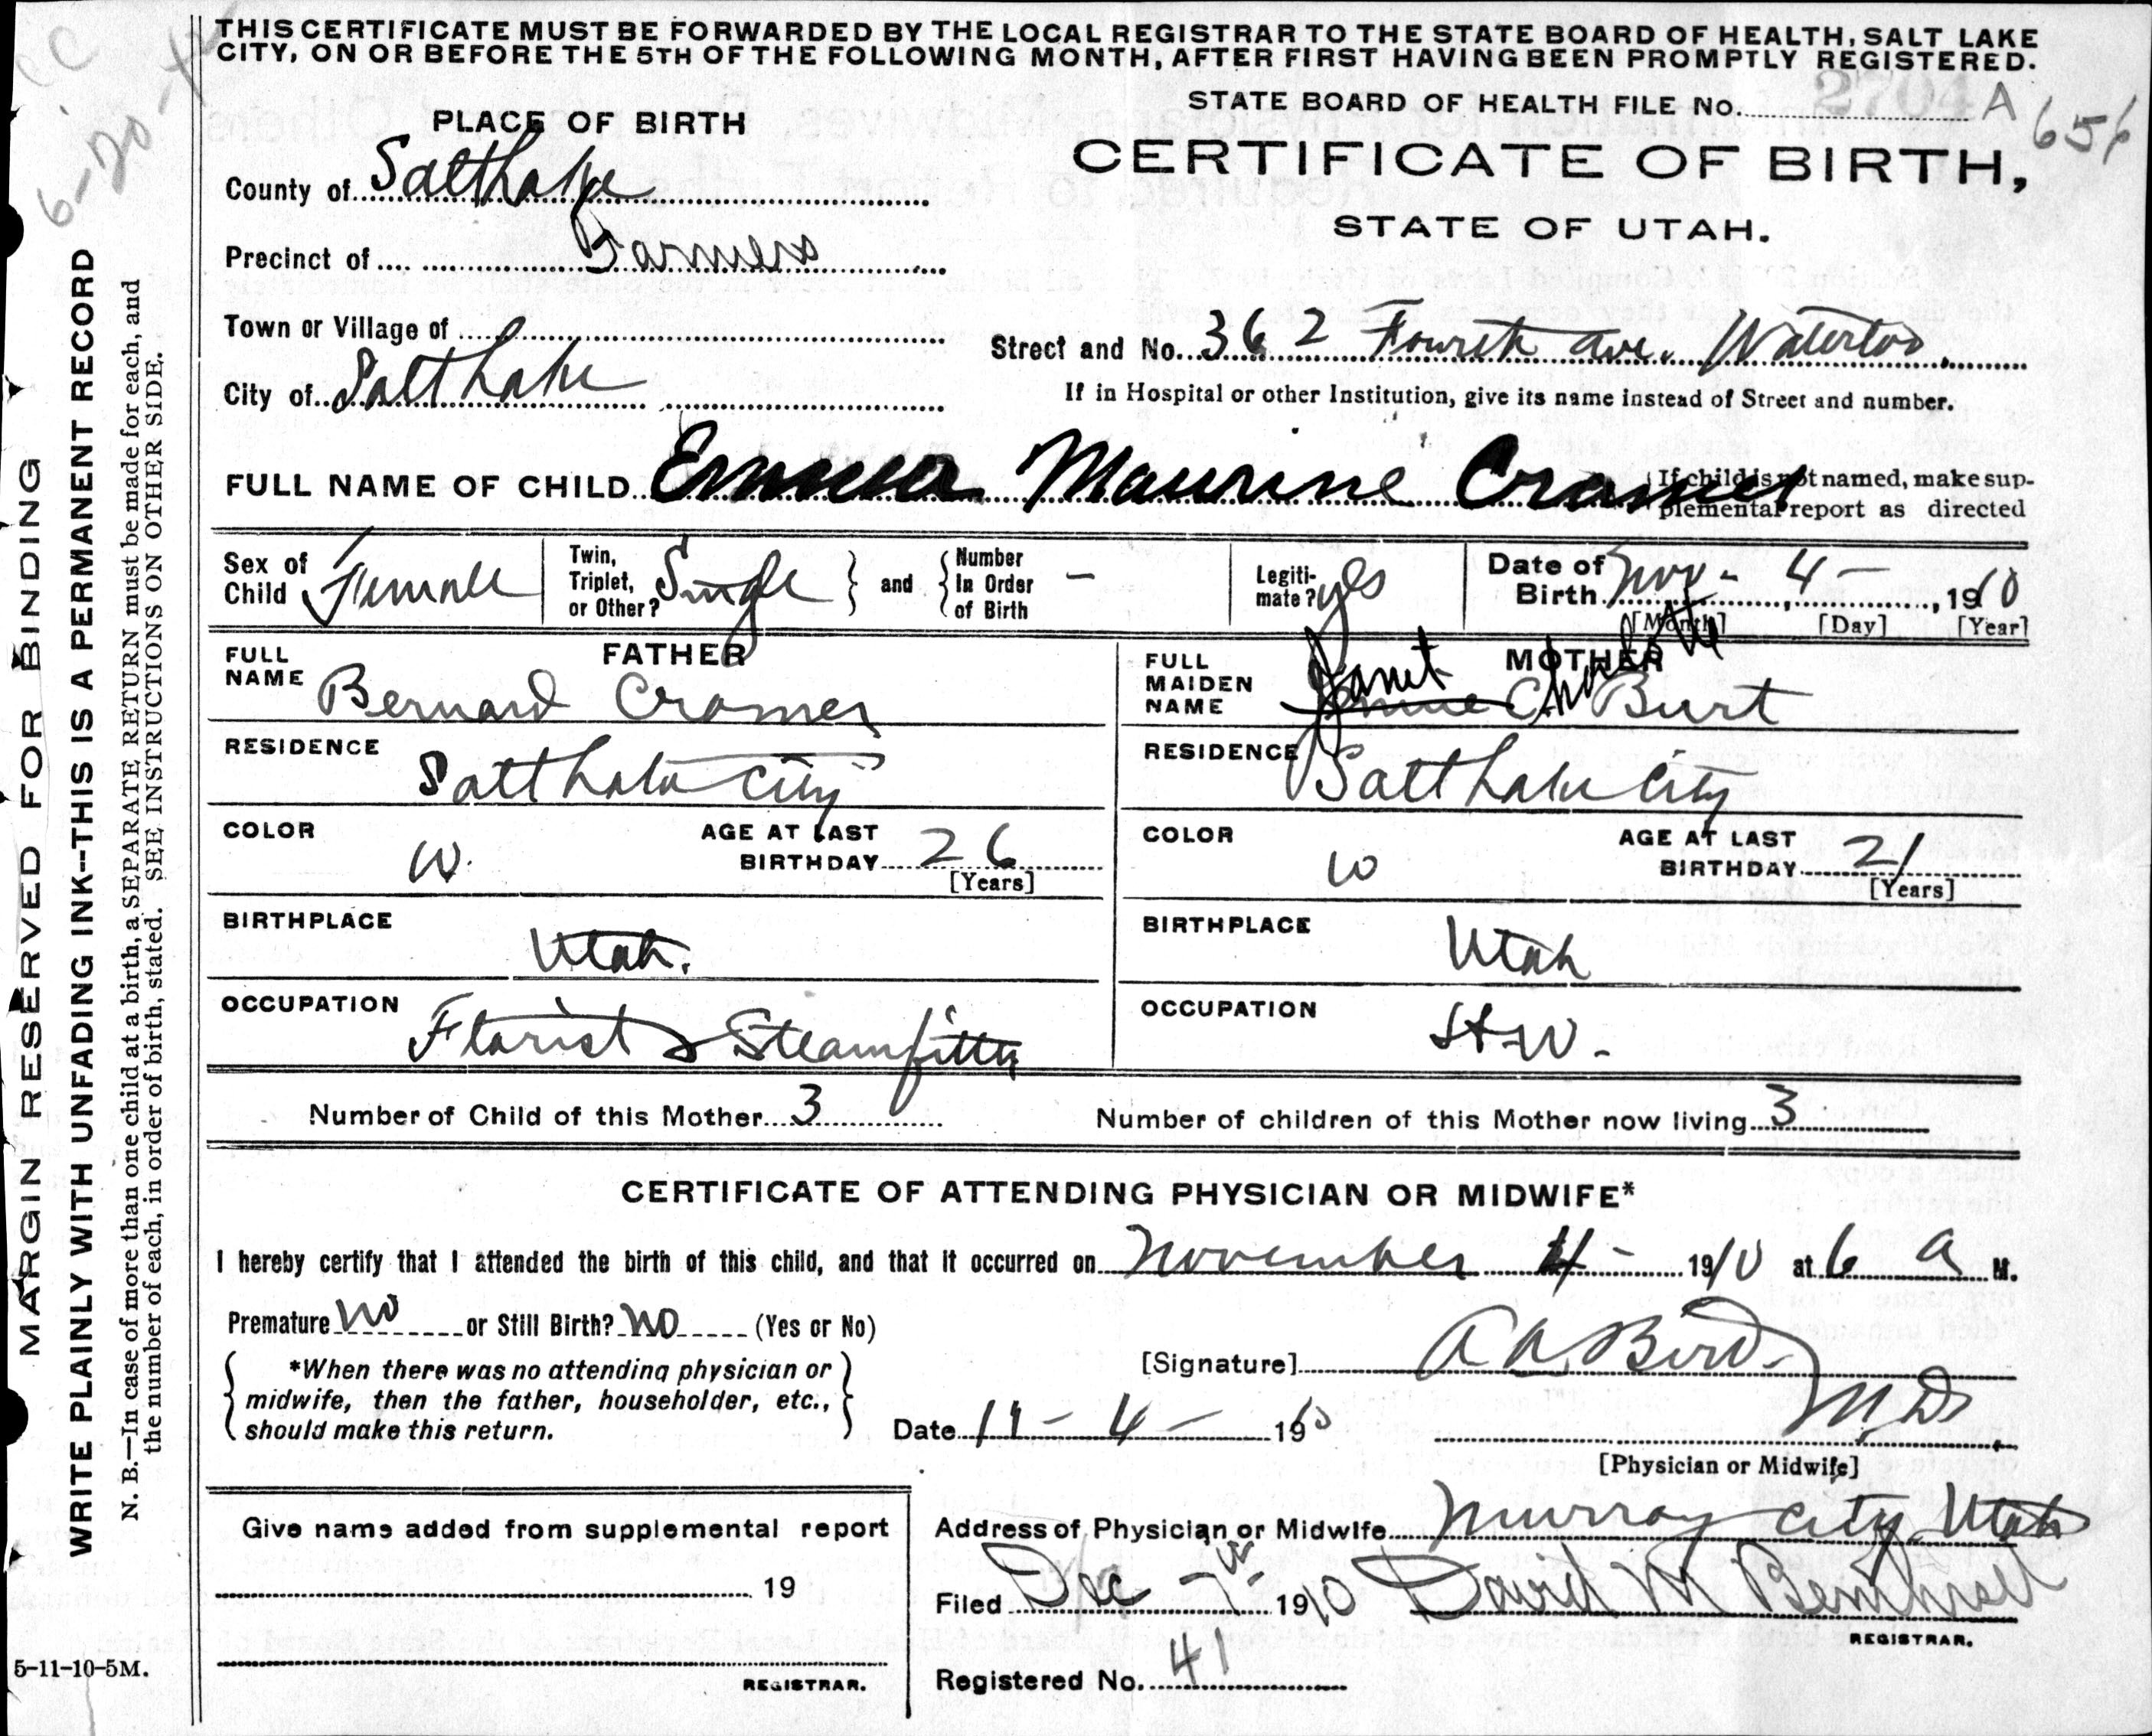 THIS CERTIFICATE MUST BE FORWARDED BY THE LOCAL REGISTRAR TO THE STATE BOARD OF HEALTH, SALT LAKE
CITY, ON OR BEFORE THE 5TH OF THE FOLLOWING MONTH, AFTER FIRST HAVING BEEN PROMPTLY REGISTERED.
STATE BOARD OF HEALTH FILE No. 2704 A 656
6-20-
PLACE OF BIRTH
CERTIFICATE OF BIRTH,
STATE OF UTAH.
County of Salt Lake
Precinct of Farmers
Town or Village of
Street and No. 362 Fourth ave. Waterloo.
City of Salt Lake
If in Hospital or other Institution, give its name instead of Street and number.
FULL NAME OF CHILD Emma Maurine Cramer
If child is not named, make sup-
plemental report as directed
Sex of Child Female
Twin, Triplet, or Other? Single and Number In Order of Birth –
Legiti-mate? yes
Date of Birth Nov - 4 - , 1910
[Month] [Day] [Year]
FATHER
FULL NAME Bernard Cramer
RESIDENCE Salt Lake City
COLOR W.
AGE AT LAST BIRTHDAY 26 [Years]
BIRTHPLACE Utah.
OCCUPATION Florist & Steamfitter
MOTHER
FULL MAIDEN NAME Janet Charlotte Jennie C. Burt
RESIDENCE Salt Lake City
COLOR W
AGE AT LAST BIRTHDAY 21 [Years]
BIRTHPLACE Utah
OCCUPATION H-W-
Number of Child of this Mother 3
Number of children of this Mother now living 3
CERTIFICATE OF ATTENDING PHYSICIAN OR MIDWIFE*
I hereby certify that I attended the birth of this child, and that it occurred on November 4 - 1910 at 6 a M.
Premature No or Still Birth? No (Yes or No)
*When there was no attending physician or
midwife, then the father, householder, etc.,
should make this return.
[Signature] A A Bird M.D.
Date 11 - 4 - 1910
[Physician or Midwife]
Give name added from supplemental report
19
REGISTRAR.
Address of Physician or Midwife Murray City, Utah
Filed Dec 7 1910 David M
REGISTRAR.
Registered No. 41
MARGIN RESERVED FOR BINDING
WRITE PLAINLY WITH UNFADING INK--THIS IS A PERMANENT RECORD
N. B.—In case of more than one child at a birth, a SEPARATE RETURN must be made for each, and
the number of each, in order of birth, stated. SEE INSTRUCTIONS ON OTHER SIDE.
5-11-10-5M.